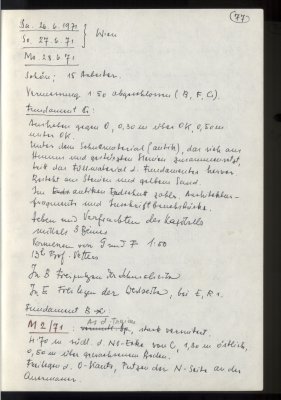 77
Sa. 26.6.1971
So. 27.6.71 } Wien
Mo. 28.6.71
Schön; 15 Arbeiter.
Vermessung 1:50 abgeschlossen (B, F, C).
Fundament C:
Ausheben gegen O, 0,30 m über OK, 0,50 m
unter OK.
Unter dem Schuttmaterial (antik), das sich aus
Humus und Steinen zusammensetzt,
tritt das Füllmaterial d. Fundamentes hervor
Besteht aus Steinen und gelbem Sand
Im antiken Erdschutt zahlr. Architektur-
fragmente und Inschriftbruchstücke.
Heben und Verfrachten des Kapitells
mittels 3 Beines
Kommen von J 1:50
13h Prof. Vetters
In B Freiputzen
In E Freilegen der Westseite, bei E, R 1.
Fundament B
M 2/71: stark vermutet.
4,70 m südl. d. NO-Ecke von C, 1,30 m östlich,
0,50 m über gewachsenem Boden.
Freilegen d. O-Kante, Putzen der N-Seite an der
Quermauer.